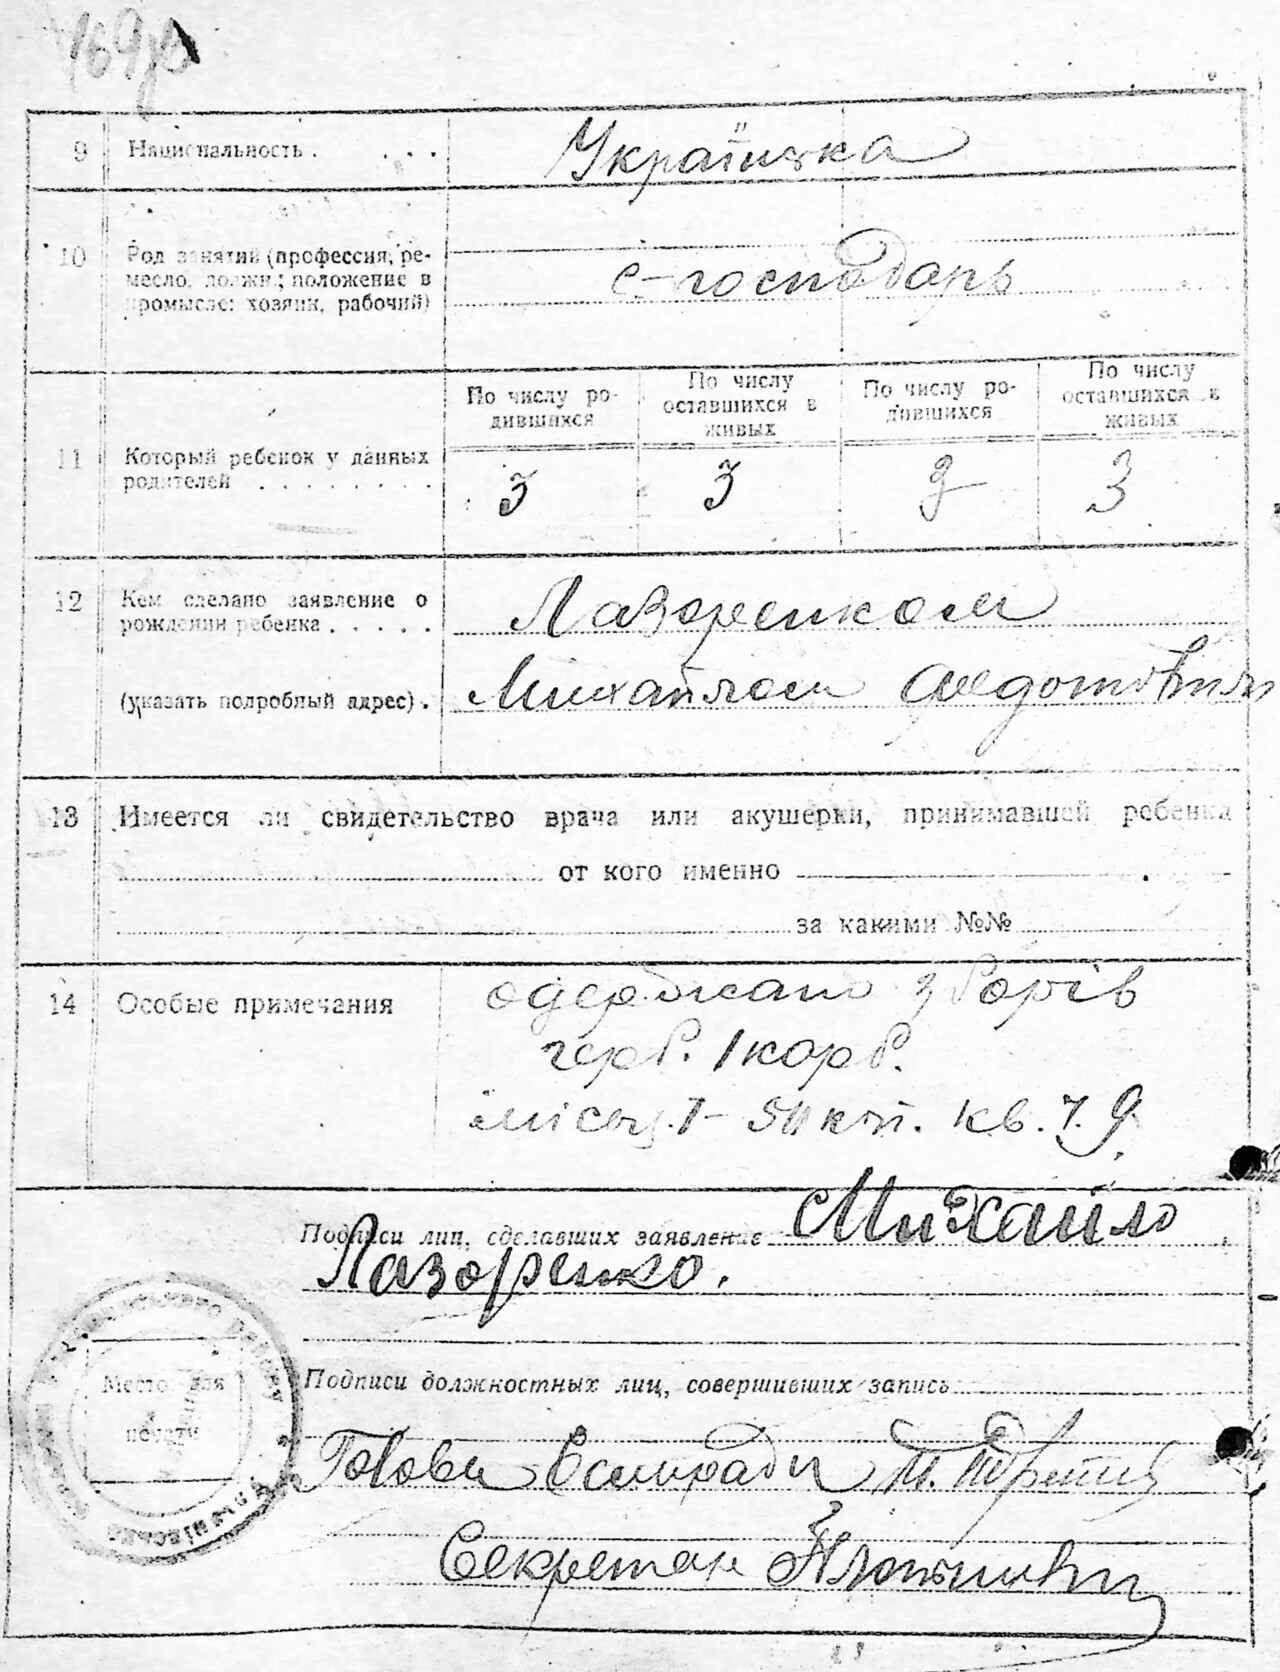 169
9 Национальность . . . . Українка
10 Род занятий (профессия, ре-
месло, должн.; положение в
промысле: хозяин, рабочий)
с-господарь
По числу ро-
дившихся
По числу
оставшихся в
живых
По числу ро-
дившихся
По числу
оставшихся в
живых
11 Который ребенок у данных
родителей . . . . . . . . 3 3 3 3
12 Кем сделано заявление о
рождении ребенка . . . . .
Лазоренком
(указать подробный адрес) . Михайлом Федотовичем
13 Имеется ли свидетельство врача или акушерки, принимавшей ребенка
от кого именно
за какими №№
14 Особые примечания
одержано зборів
герб. 1 карб.
місц. 1-50 коп. кв. ч. 9
Подписи лиц, сделавших заявление Михайло
Лазоренко.
Место для
печати
Подписи должностных лиц, совершивших запись
Голова Сільради
Секретар